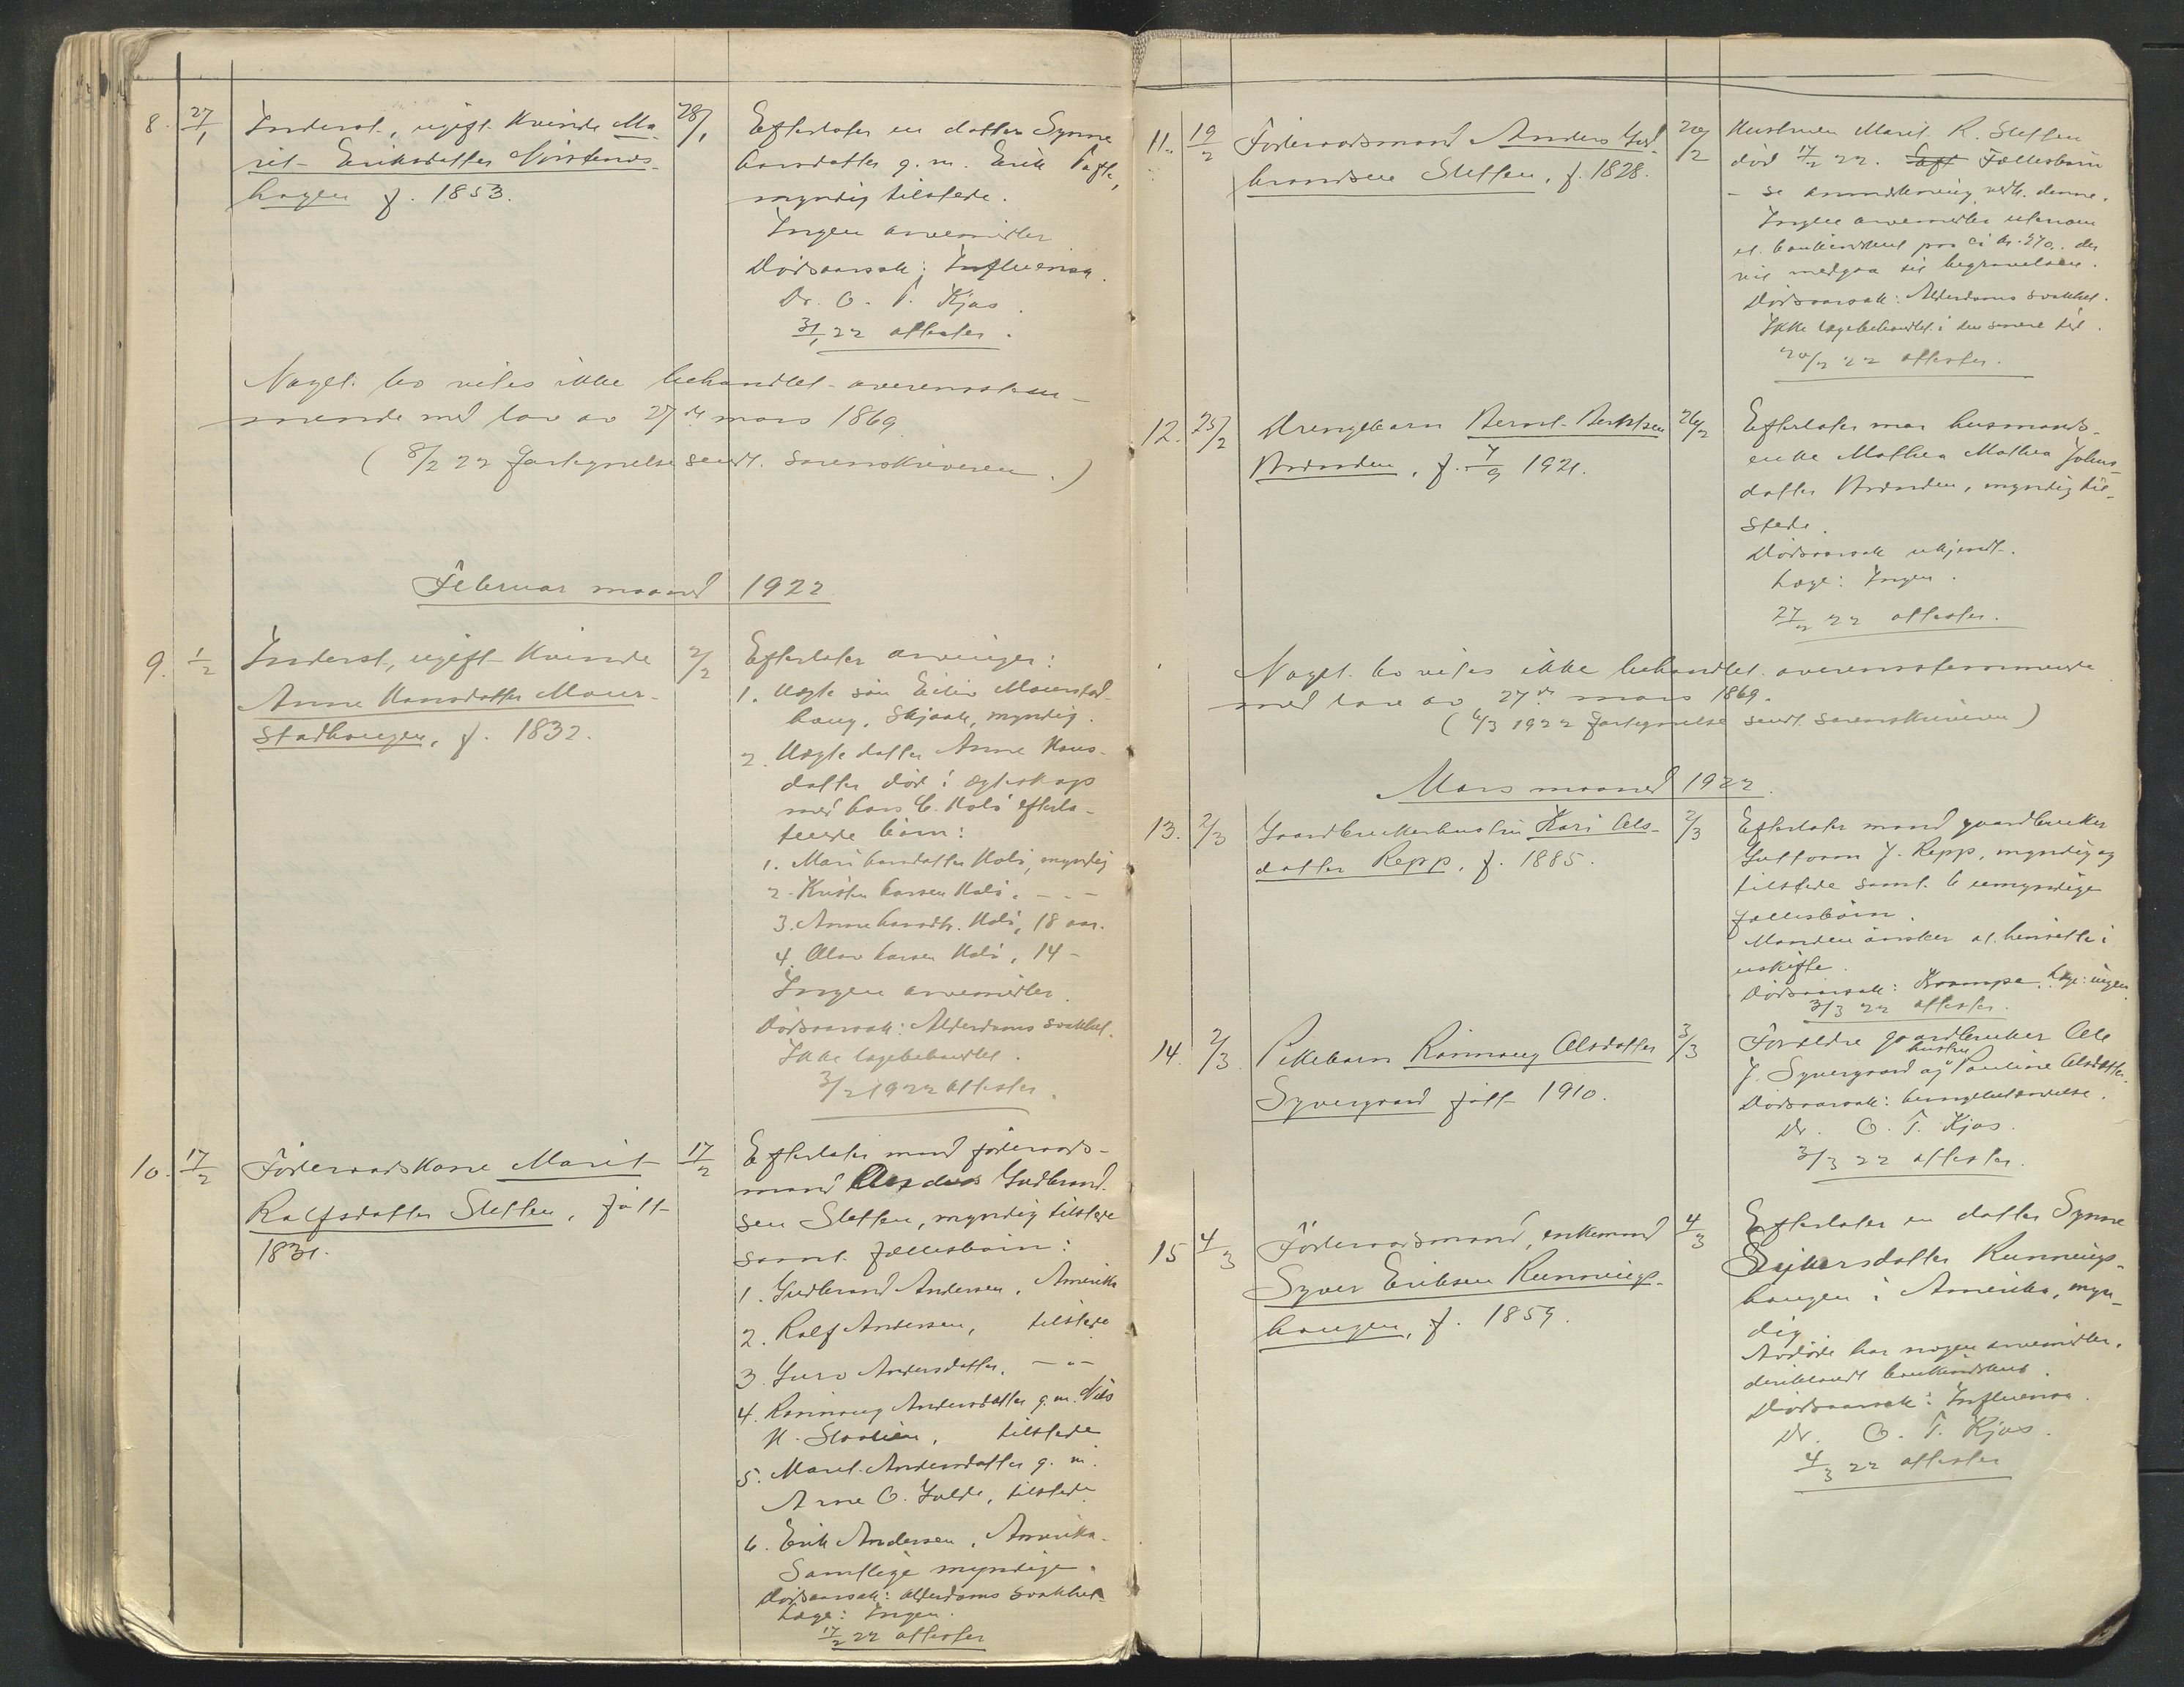 8. 27/1 Inderst, ugift Kvinde Ma-
rit Eriksdatter
hagen f. 1853.
28/1 Efterlater en datter Synne
Larsdatter g. m. Erik
myndig tilstede.
Ingen arvemidler
Dødsaarsak: Influensa.
Dr. O. T. Kjos.
31/1 22 attester.
Noget bo vites ikke behandlet overensstem-
mende med lov av 27de mars 1869.
(8/2 22 fortegnelse sendt sorenskriveren.)
Februar maaned 1922
9. 1/2 Inderst, ugift Kvinde
Anne Hansdatter Mour-
stadhaugen, f. 1832.
2/2 Efterlater arvinger:
1. Uægte søn Eiliv Mourstad-
haug, Skjaak, myndig.
2. Uægte datter Anne Hans-
datter død i egteskap
med Lars C. Hole efterla-
tende børn:
1. Mari Larsdatter Hole, myndig
2. Kristen Larsen Hole. - " -
3. Anne Larsdtr. Hole, 18 aar.
4. Olav Larsen Hole, 14 -
Ingen arvemidler.
Dødsaarsak: Alderdoms svakhet.
Ikke lægebehandlet.
3/2 1922 attester.
10. 17/2 Føderaadskone Marit
Rolfsdatter Sletten, født
1831.
17/2 Efterlater mand føderaads-
mand Anders Gudbrand-
sen Sletten, myndig tilstede
samt fællesbørn:
1. Gudbrand Andersen, Amerika
2. Rolf Andersen, tilstede
3. Guro Andersdatter, - " -
4. Rønnaug Andersdatter g. m. Nils
H. tilstede
5. Marit Andersdatter g. m.
Arne O. Jolde, tilstede
6. Erik Andersen, Amerika.
Samtlige myndige.
Dødsaarsak: Alderdoms svakhet
Læge: Ingen.
17/2 22 attester
11. 19/2 Føderaadsmand Anders Gud-
brandsen Sletten, f. 1828.
20/2 Hustruen Marit R. Sletten
død 17/2 22. Fællesbørn
- se anmerkning vedk. denne.
Ingen arvemidler utenom
et bankindskud paa ca kr. 270.. der
vil medgaa til begravelsen.
Dødsaarsak: Alderdoms svakhet.
Ikke lægebehandlet i den senere tid.
20/2 22 attester.
12. 25/2 Drengebarn Bernt Berntsen
f. 7/9 1921.
26/2 Efterlater mor husmands-
enke Mathea Mathea Johns-
datter myndig til-
stede.
Dødsaarsak ukjendt.
Læge: Ingen.
27/2 22 attester.
Noget bo vites ikke behandlet overensstemmende
med lov av 27de mars 1869.
(6/3 1922 fortegnelse sendt sorenskriveren)
Mars maaned 1922.
13. 2/3 Gaardbrukerhustru Kari Ols-
datter Repp, f. 1885.
2/3 Efterlater mand gaardbruker
Guttorm J. Repp, myndig og
tilstede samt 6 umyndige
fællesbørn.
Manden ønsker at hensitte i
uskifte.
Dødsaarsak: Krampe. Læge: ingen.
3/3 22 attester.
14. 2/3 Pikebarn Rønnaug Olsdatter
Syvergaard født 1910.
3/3 Forældre gaardbruker Ole
J. Syvergaard og hustru Pauline Olsdatter.
Dødsaarsak: Lungebetændelse.
Dr. O. T. Kjos.
3/3 22 attester.
15 4/3 Føderaadsmand, enkemand
Syver Eriksen Runnings-
haugen, f. 1859.
4/3 Efterlater en datter Synne
Syversdatter Runnings-
haugen i Amerika, myn-
dig
Avdøde har nogen arvemidler,
deriblandt bankindskud.
Dødsaarsak: Influensa.
Dr. O. T. Kjos.
4/3 22 attester